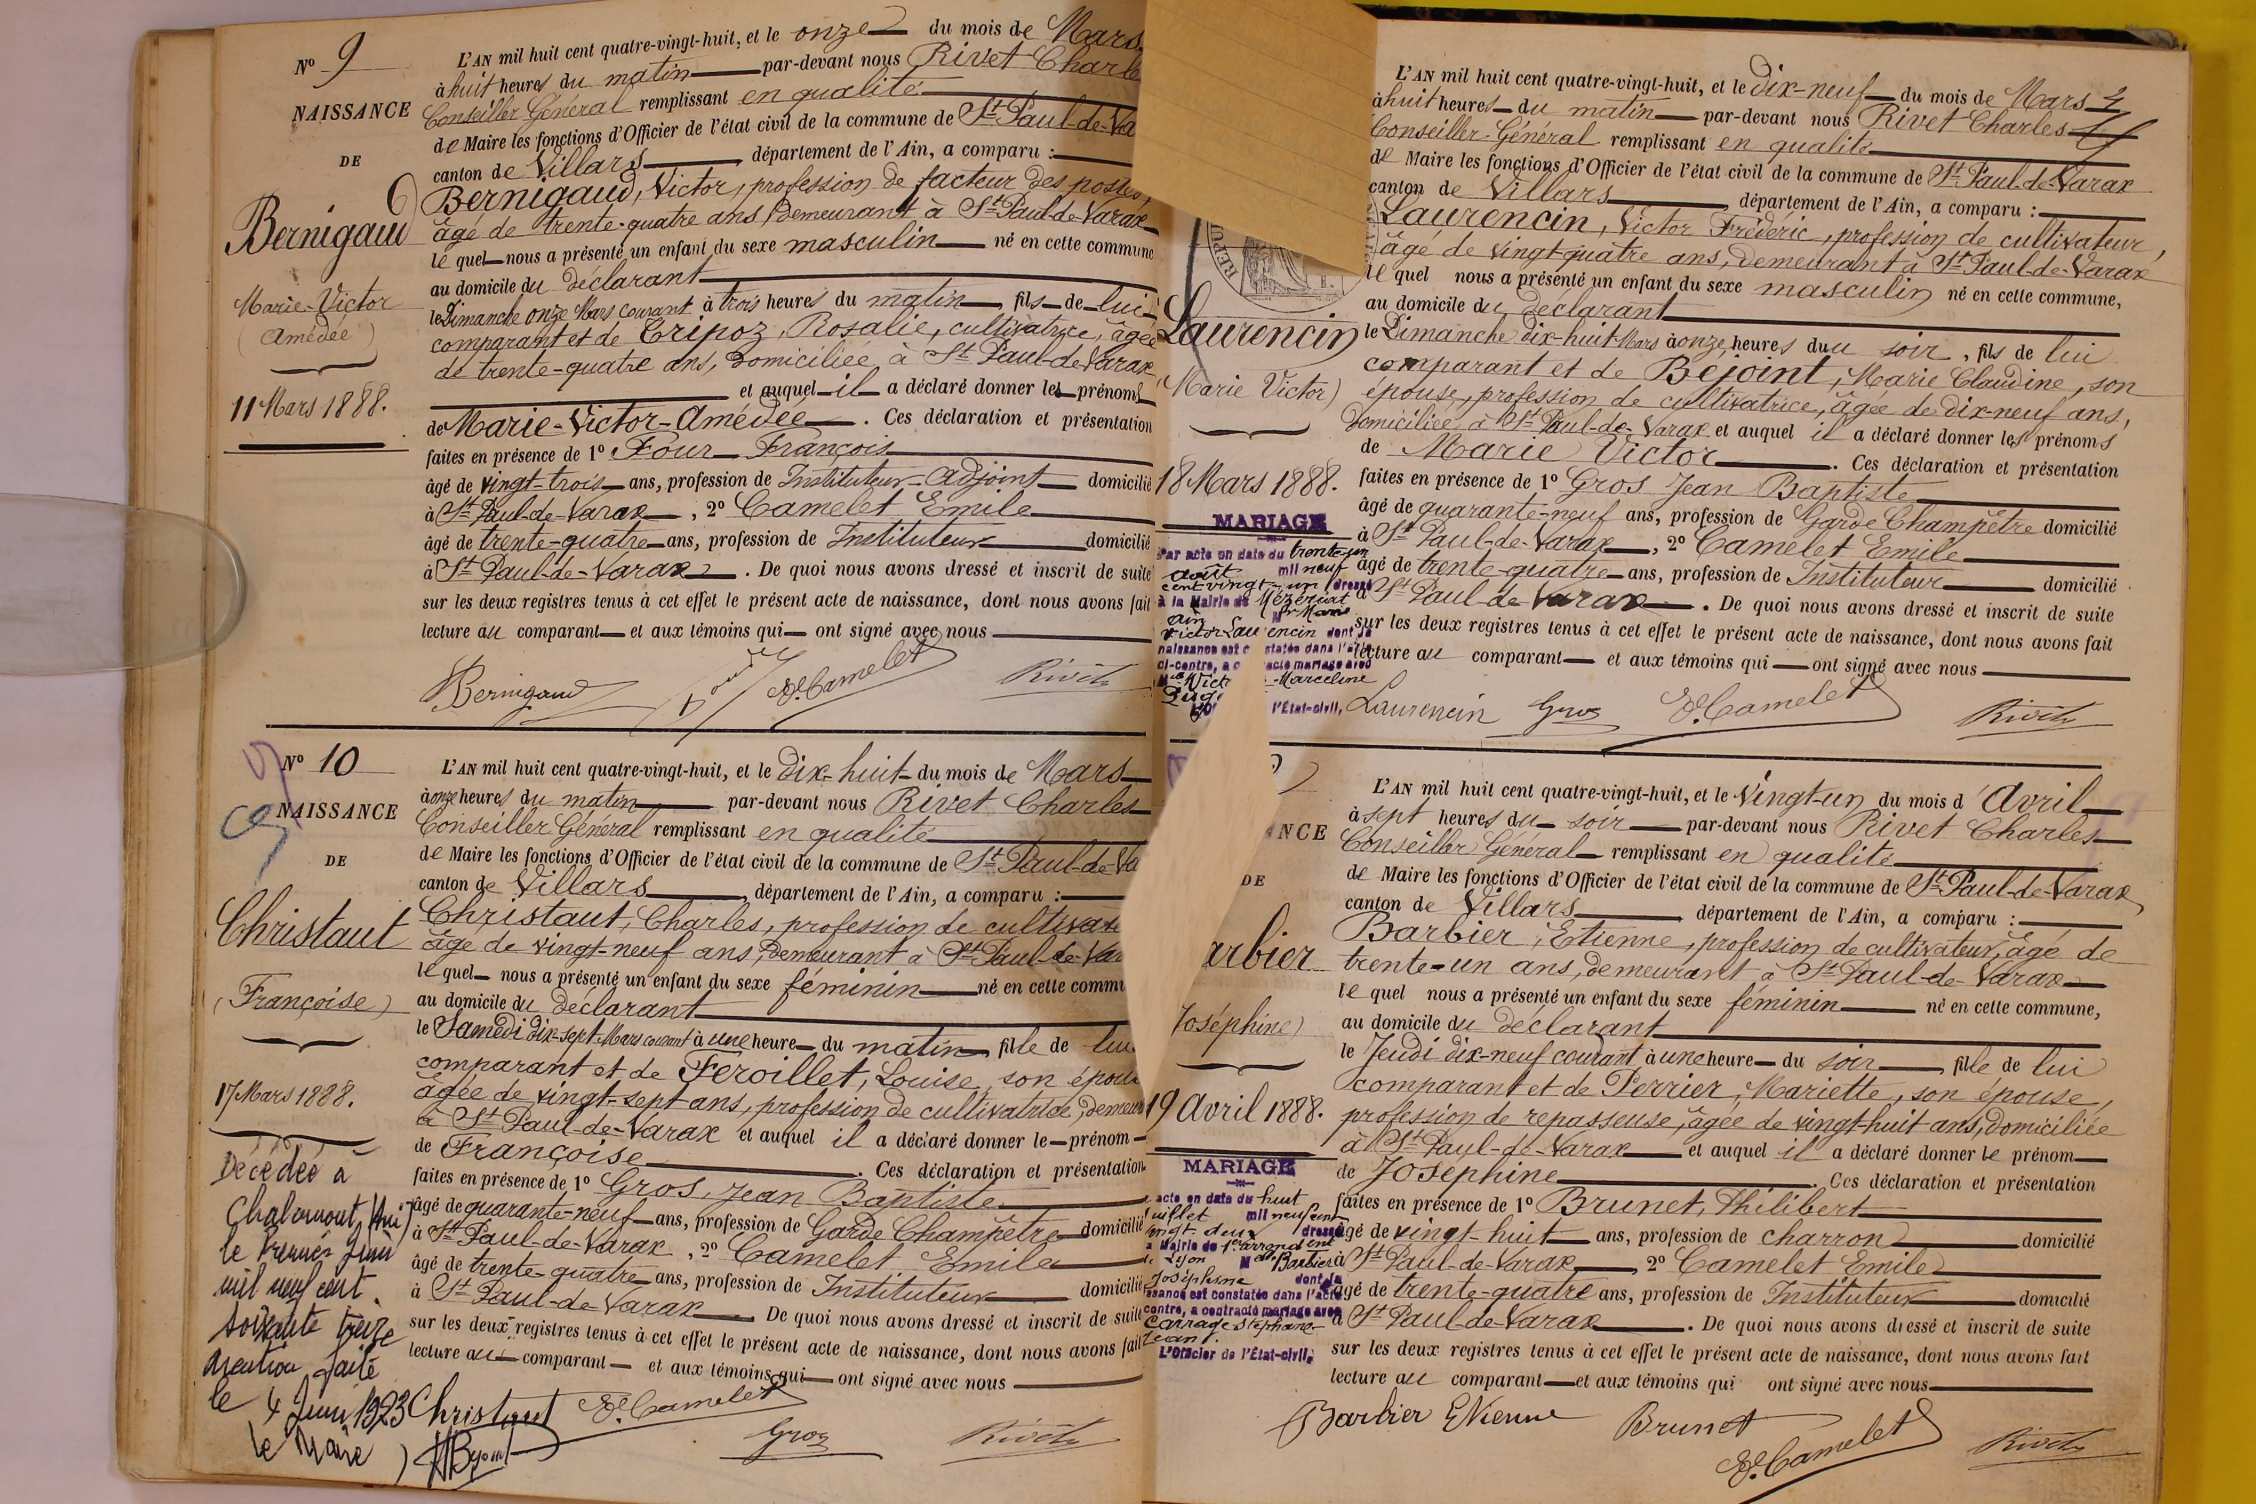 N° 9
NAISSANCE
DE
Bernigaud
Marie-Victor
(Amédée)
11 Mars 1888.
L'AN mil huit cent quatre-vingt-huit, et le onze du mois de Mars
à huit heures du matin par-devant nous Rivet Charles
Conseiller Général remplissant en qualité
de Maire les fonctions d'Officier de l'état civil de la commune de St Paul-de-Va
canton de Villars, département de l'Ain, a comparu :
Bernigaud, Victor, profession de facteur des postes,
âgé de trente-quatre ans, demeurant à St Paul-de-Varax
le quel nous a présenté un enfant du sexe masculin né en cette commune
au domicile du déclarant
le Dimanche onze Mars courant à trois heures du matin, fils de lui
comparant et de Tripoz, Rosalie, cultivatrice, âgée
de trente-quatre ans, domiciliée à St Paul-de-Varax
et auquel il a déclaré donner les prénoms
de Marie-Victor-Amédée. Ces déclaration et présentation
faites en présence de 1° Four François
âgé de vingt-trois ans, profession de Instituteur-adjoint domicilié
à St Paul-de-Varax, 2° Camelet Emile
âgé de trente-quatre ans, profession de Instituteur domicilié
à St Paul-de-Varax. De quoi nous avons dressé et inscrit de suite
sur les deux registres tenus à cet effet le présent acte de naissance, dont nous avons fait
lecture au comparant et aux témoins qui ont signé avec nous
Bernigaud Four E. Camelet Rivet
N° 10
NAISSANCE
DE
Christaut
(Françoise)
17 Mars 1888.
Décédée à
Chalamont (Ain)
le Premier Juin
mil neuf cent
soixante treize
Mention faite
le 4 Juin 1973
le Maire
L'AN mil huit cent quatre-vingt-huit, et le dix-huit du mois de Mars
à onze heures du matin par-devant nous Rivet Charles
Conseiller Général remplissant en qualité
de Maire les fonctions d'Officier de l'état civil de la commune de St Paul-de-Va
canton de Villars, département de l'Ain, a comparu :
Christaut, Charles, profession de cultivate
âgé de vingt-neuf ans, demeurant à St Paul-de-Var
le quel nous a présenté un enfant du sexe féminin né en cette commu
au domicile du déclarant
le Samedi dix-sept Mars courant à une heure du matin, fille de lui
comparant et de Feroillet, Louise, son épouse
âgée de vingt-sept ans, profession de cultivatrice, demeur
à St Paul-de-Varax et auquel il a déclaré donner le prénom
de Françoise. Ces déclaration et présentation
faites en présence de 1° Gros, Jean Baptiste
âgé de quarante-neuf ans, profession de Garde Champêtre domicilié
à St Paul-de-Varax, 2° Camelet Emile
âgé de trente-quatre ans, profession de Instituteur domicilié
à St Paul-de-Varax. De quoi nous avons dressé et inscrit de suite
sur les deux registres tenus à cet effet le présent acte de naissance, dont nous avons fait
lecture au comparant et aux témoins qui ont signé avec nous
Christaut E. Camelet
Gros Rivet
Laurencin
(Marie Victor)
18 Mars 1888.
MARIAGE
Par acte en date du trente-un
août mil neuf
cent vingt-un dressé
à la Mairie de Mézériat
Ain M r Marie
Victor Laurencin dont la
naissance est constatée dans l'acte
ci-contre, a contracté mariage avec
Marceline
l'État-civil,
L'AN mil huit cent quatre-vingt-huit, et le dix-neuf du mois de Mars
à huit heures du matin par-devant nous Rivet Charles
Conseiller-Général remplissant en qualité
de Maire les fonctions d'Officier de l'état civil de la commune de St Paul-de-Varax
canton de Villars, département de l'Ain, a comparu :
Laurencin, Victor Frédéric, profession de cultivateur,
âgé de vingt-quatre ans, demeurant à St Paul-de-Varax
le quel nous a présenté un enfant du sexe masculin né en cette commune,
au domicile du déclarant
le Dimanche dix-huit Mars à onze heures du soir, fils de lui
comparant et de Bejoint, Marie Claudine, son
épouse, profession de cultivatrice, âgée de dix-neuf ans,
domiciliée à St Paul-de-Varax et auquel il a déclaré donner les prénoms
de Marie Victor. Ces déclaration et présentation
faites en présence de 1° Gros Jean Baptiste
âgé de quarante-neuf ans, profession de Garde Champêtre domicilié
à St Paul-de-Varax, 2° Camelet Emile
âgé de trente-quatre ans, profession de Instituteur domicilié
à St Paul-de-Varax. De quoi nous avons dressé et inscrit de suite
sur les deux registres tenus à cet effet le présent acte de naissance, dont nous avons fait
lecture au comparant et aux témoins qui ont signé avec nous
Laurencin Gros E. Camelet Rivet
NCE
DE
arbier
Joséphine)
19 Avril 1888.
MARIAGE
acte en date du huit
Juillet mil neuf cent
vingt-deux dressé
a Mairie de 1er arrondent
de Lyon M elle Barbier
Joséphine dont la
issance est constatée dans l'acte
contre, a contracté mariage avec
Carrage Stéphane
Jean.
L'Officier de l'État-civil,
L'AN mil huit cent quatre-vingt-huit, et le vingt-un du mois d'Avril
à sept heures du soir par-devant nous Rivet Charles
Conseiller Général remplissant en qualité
de Maire les fonctions d'Officier de l'état civil de la commune de St Paul-de-Varax
canton de Villars, département de l'Ain, a comparu :
Barbier, Etienne, profession de cultivateur, âgé de
trente-un ans, demeurant à St Paul-de-Varax
le quel nous a présenté un enfant du sexe féminin né en cette commune,
au domicile du déclarant
le Jeudi dix-neuf courant à une heure du soir, fille de lui
comparant et de Perrier, Mariette, son épouse,
profession de repasseuse, âgée de vingt-huit ans, domiciliée
à St Paul-de-Varax et auquel il a déclaré donner le prénom
de Joséphine. Ces déclaration et présentation
faites en présence de 1° Brunet, Philibert
âgé de vingt-huit ans, profession de charron domicilié
à St Paul-de-Varax, 2° Camelet Emile
âgé de trente-quatre ans, profession de Instituteur domicilié
à St Paul-de-Varax. De quoi nous avons dressé et inscrit de suite
sur les deux registres tenus à cet effet le présent acte de naissance, dont nous avons fait
lecture au comparant et aux témoins qui ont signé avec nous
Barbier Etienne Brunet
E. Camelet Rivet